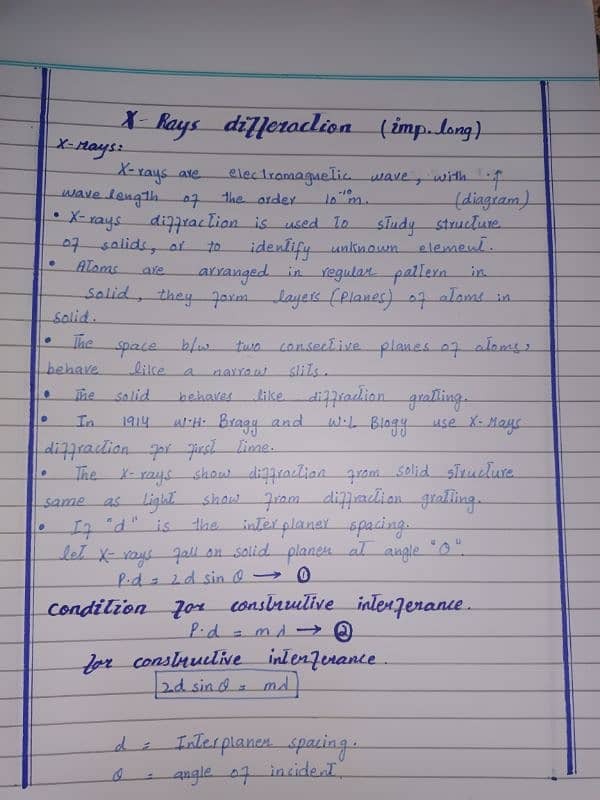 X-Rays diffraction (imp. long)
X-rays:
X-rays are electromagnetic wave, with
wave length of the order 10⁻¹⁰m. (diagram)
• X-rays diffraction is used to study structure
of solids, or to identify unknown element.
• Atoms are arranged in regular pattern in
solid, they form layers (planes) of atoms in
solid.
• The space b/w two consective planes of atoms,
behave like a narrow slits.
• The solid behaves like diffraction gratting.
• In 1914 W.H. Bragg and W.L Blogy use X-Rays
diffraction for first time.
• The X-rays show diffraction from solid structure
same as light show from diffraction gratting.
• If "d" is the inter planer spacing.
let X-rays fall on solid planer at angle "θ".
P.d = 2d sin θ → ①
Condition for constructive interferance.
P.d = mλ → ②
for constructive interferance.
2d sin θ = mλ
d = Interplaner spacing.
θ = angle of incident.